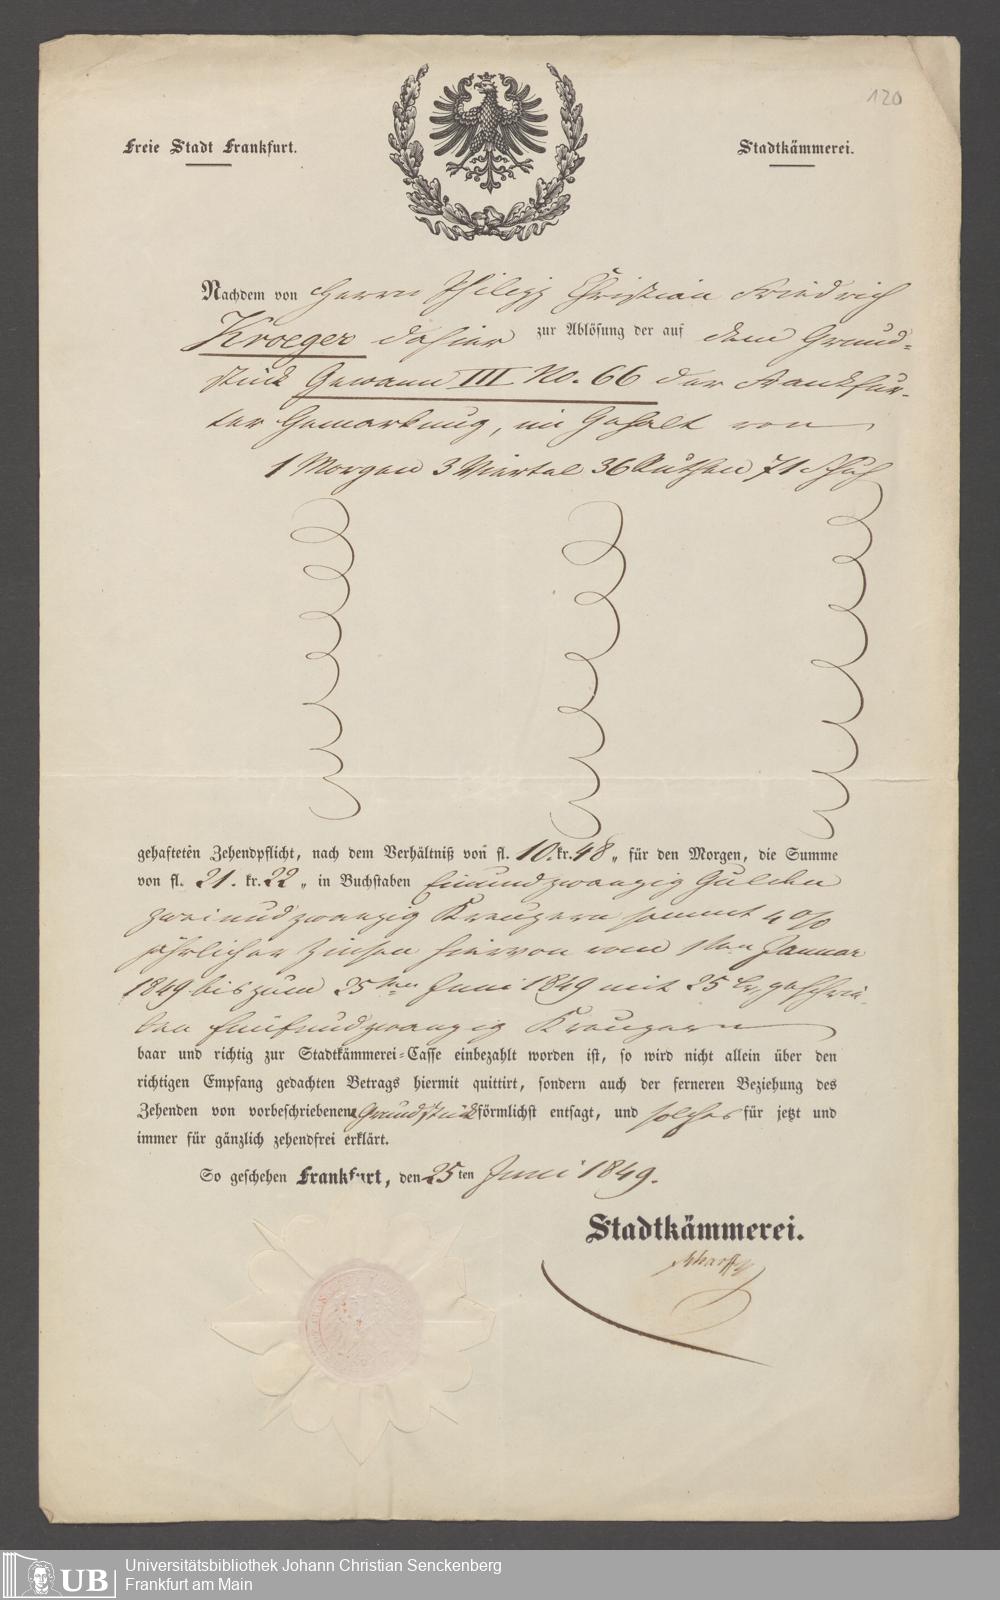 120
Freie Stadt Frankfurt.
Stadtkämmerei.
Nachdem von Herrn Philipp Christian Friedrich
Kroeger dahier zur Ablösung der auf dem Grund-
stück Gewann III No. 66 der Frankfur-
ter Gemarkung, im Gehalt von
1 Morgen 3 Viertel 36 Ruthen 71 Schuh
gehafteten Zehendpflicht, nach dem Verhältniß von fl. 10. kr. 48 „ für den Morgen, die Summe
von fl. 21. kr. 22 „ in Buchstaben Einundzwanzig Gulden
zweiundzwanzig Kreuzern sammt 4 0/0
jährlicher Zinsen hiervon vom 1ten Januar
1849 bis zum 25ten Juni 1849 mit 25 kr, geschrie-
ben fünfundzwanzig Kreuzern
baar und richtig zur Stadtkämmerei-Casse einbezahlt worden ist, so wird nicht allein über den
richtigen Empfang gedachten Betrags hiermit quittirt, sondern auch der ferneren Beziehung des
Zehenden von vorbeschriebenem Grundstück förmlichst entsagt, und solches für jetzt und
immer für gänzlich zehendfrei erklärt.
So geschehen Frankfurt, den 25ten Juni 1849.
Stadtkämmerei.
Scharff
UB
Universitätsbibliothek Johann Christian Senckenberg
Frankfurt am Main